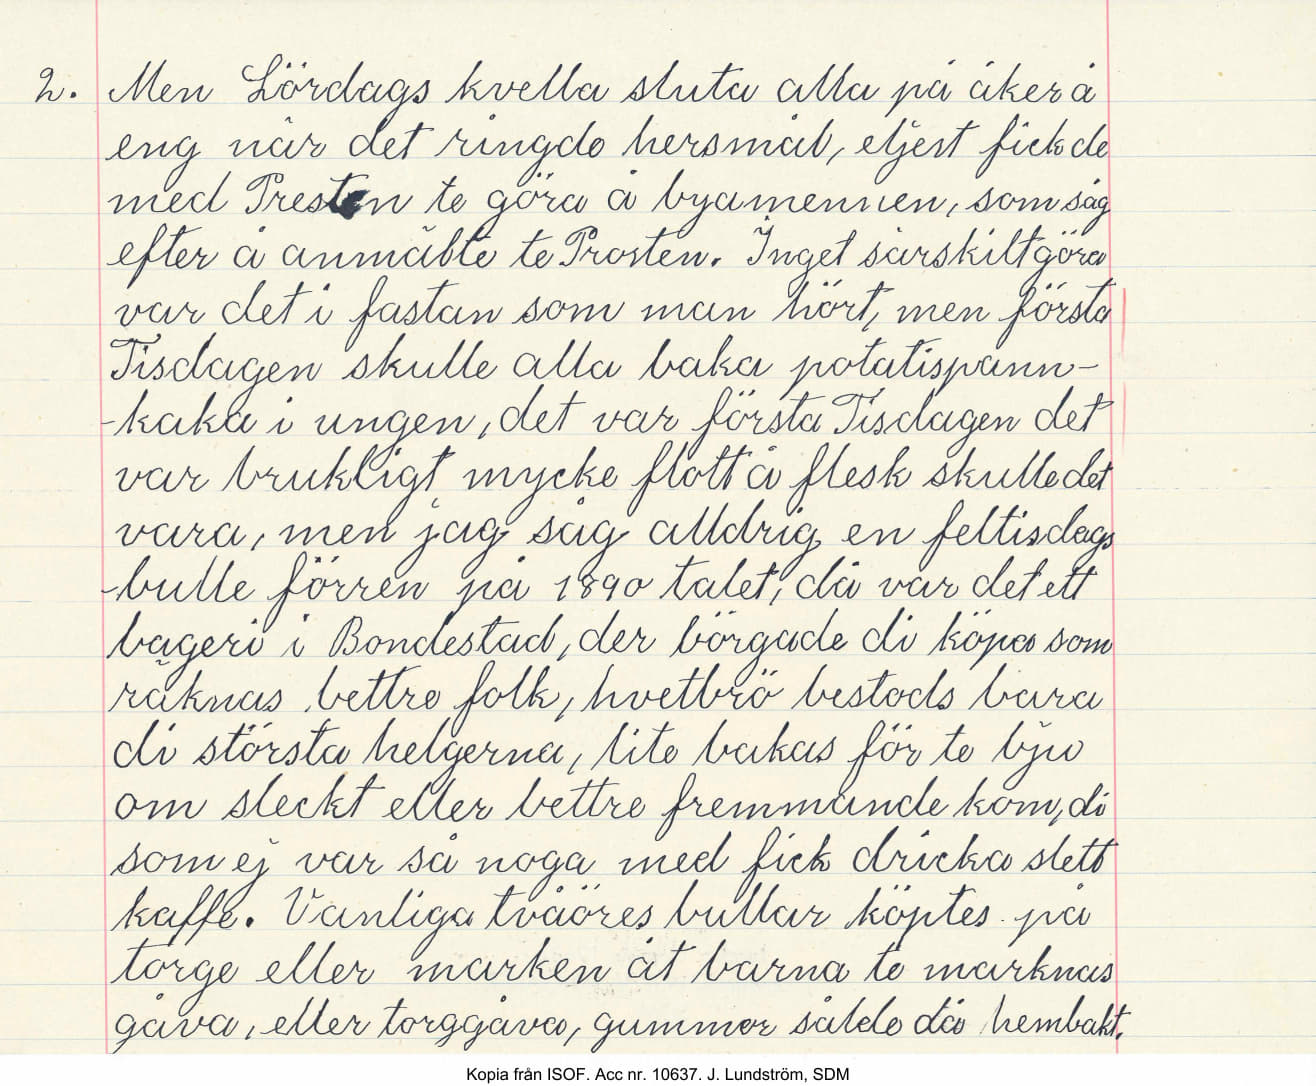 2. Men Lördags kvella sluta alla på åker å
eng når det ringde hersmål, eljest fick de
med Presten te göra å byamennen, som såg
efter å anmälte te Prosten. Inget särskilt göra
var det i fastan som man hört, men första
Tisdagen skulle alla baka potatispann-
-kaka i ungen, det var första Tisdagen det
var brukligt mycke flott å flesk skulle det
vara, men jag såg alldrig en feltisdags
-bulle förren på 1890 talet, då var det ett
bageri i Bondestad, der börgade di köpa som
räknas bettre folk, hvetbrö bestods bara
di största helgerna, lite bakas för te bju
om sleckt eller bettre fremmande kom, di
som ej var så noga med fick dricka slett
kaffe. Vanliga tvåöres bullar köptes på
torge eller marken åt barna te marknas
gåva, eller torggåva, gummor sålde då hembakt.
Kopia från ISOF. Acc nr. 10637. J. Lundström, SDM